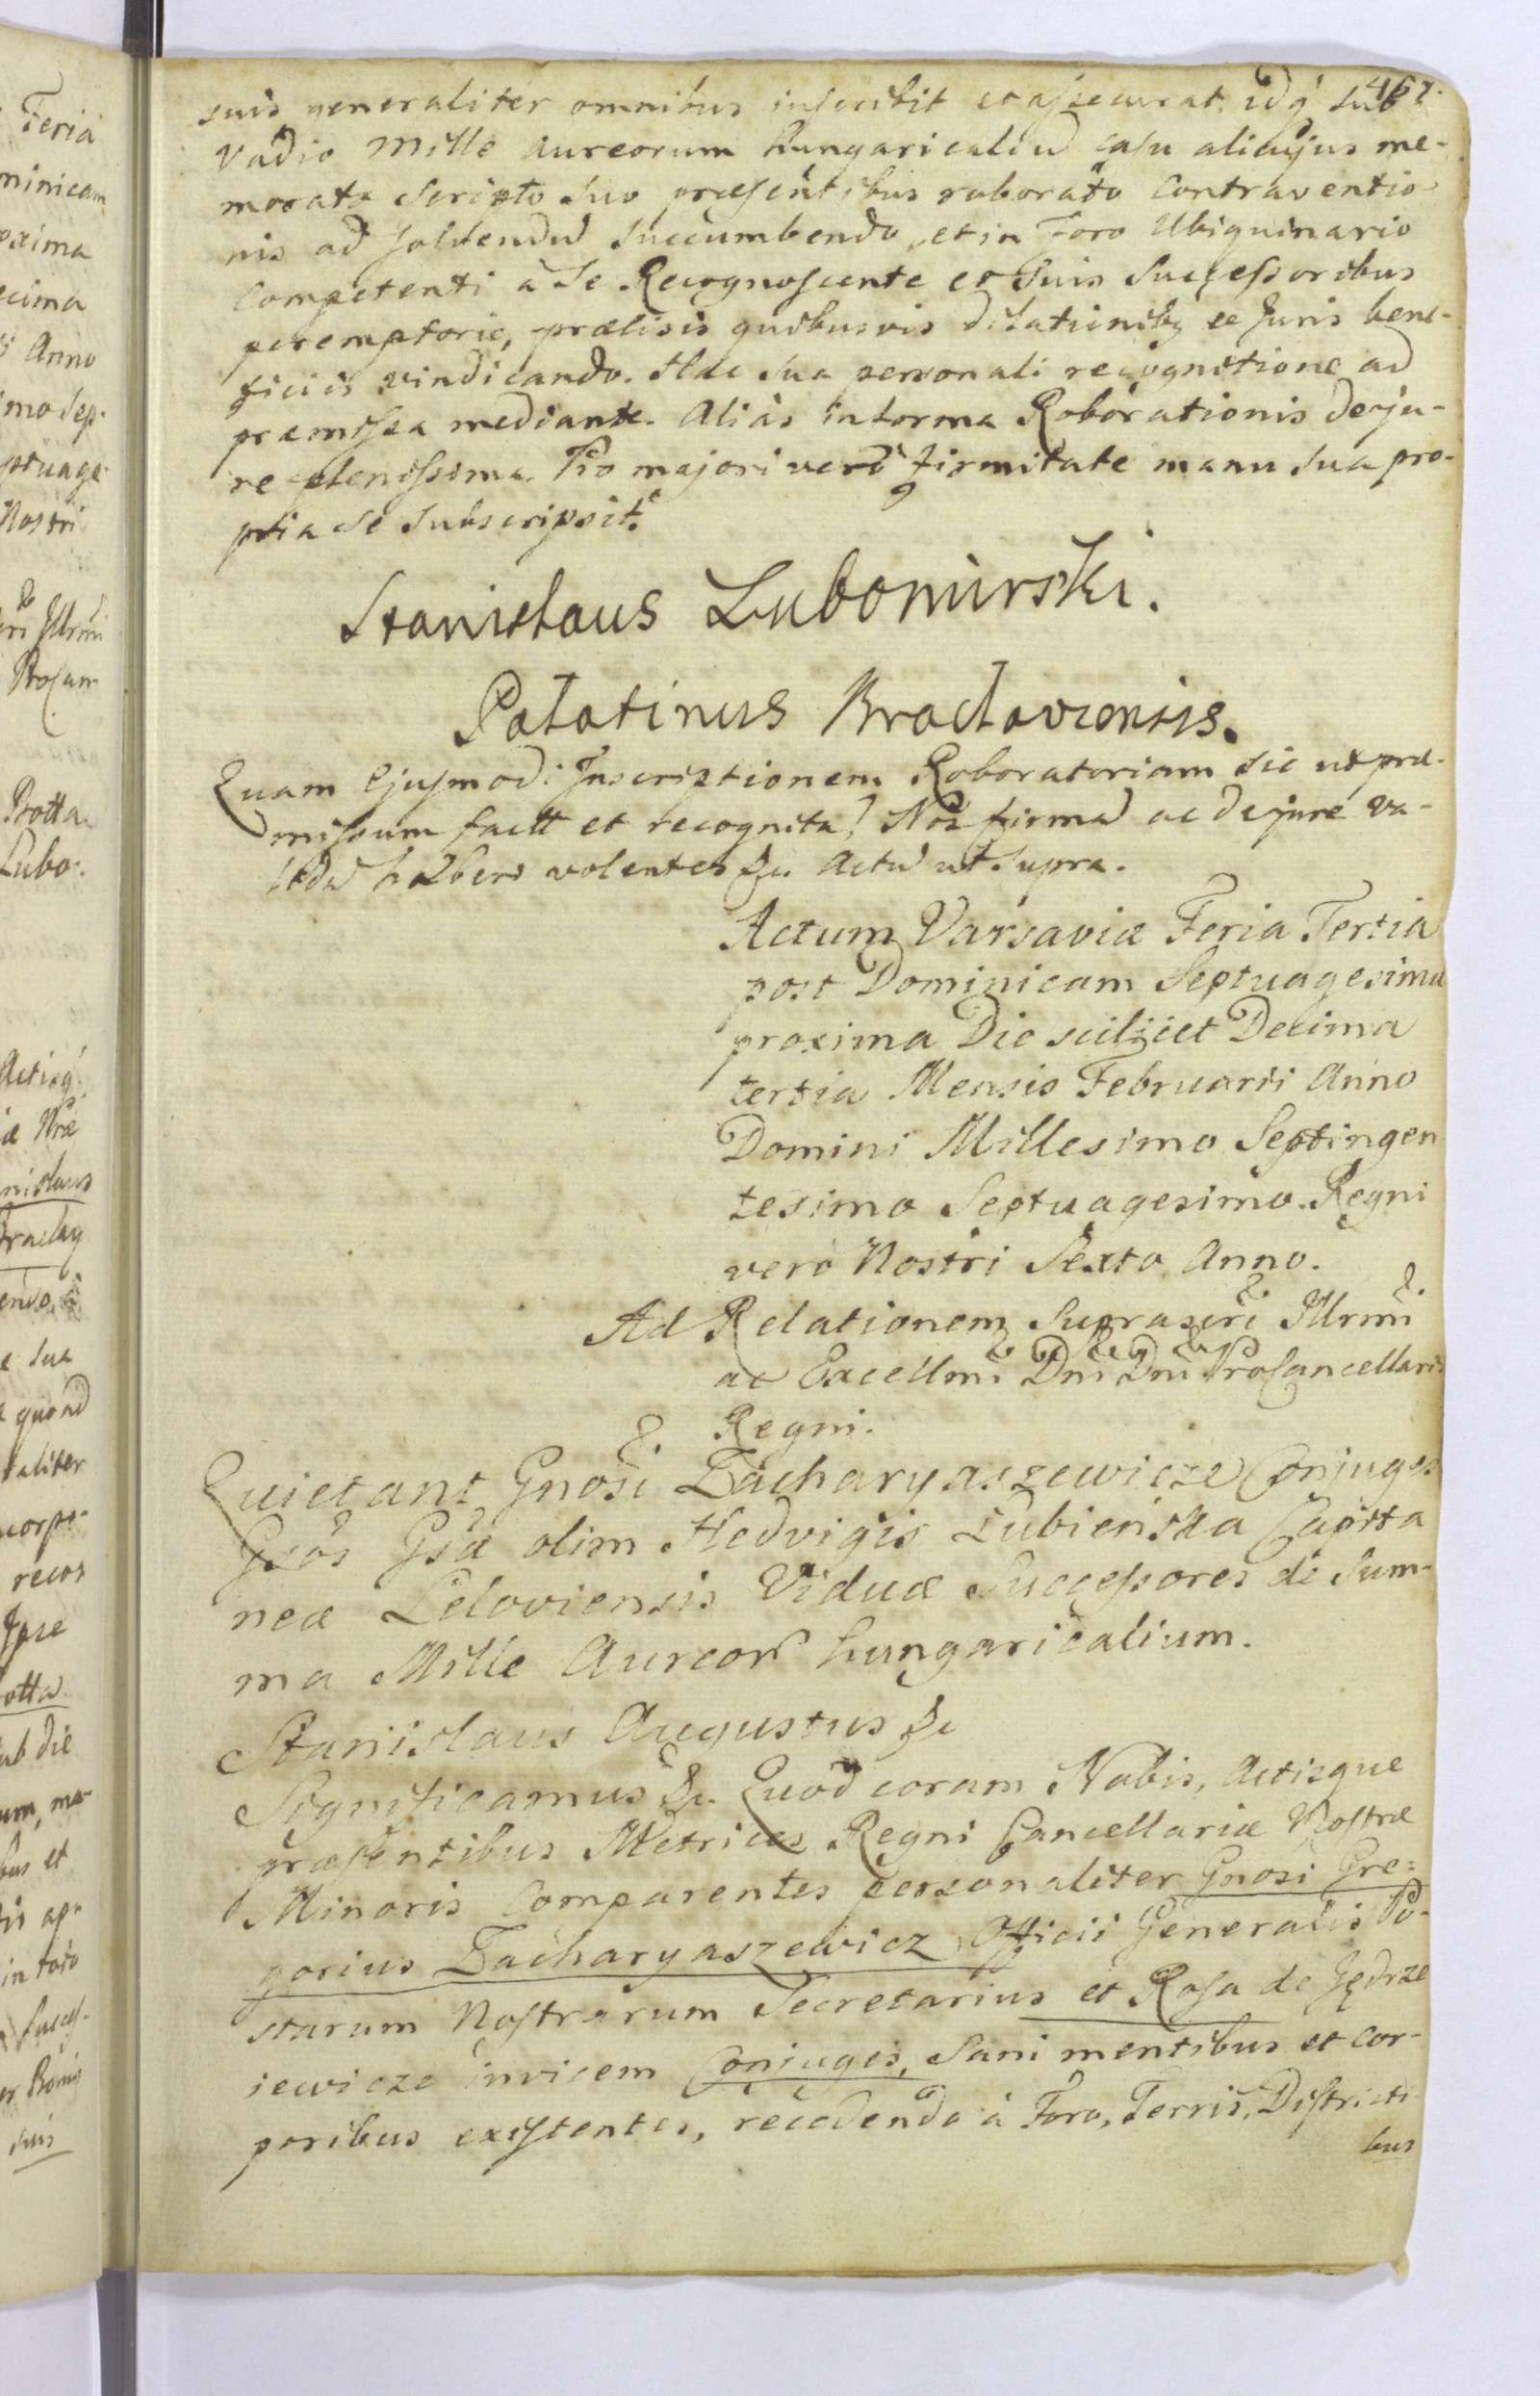 467.
suis generaliter omnibus inscribit et assecurat, idq́ sub
Vadio Mille aureorum hungaricaliũ casu alicujus me-
morato scripto suo præsentibus roborato Contraventio-
nis ad solvendũ succumbendo, et in Foro Ubiquinario
Competenti à se Recognoscente et suis Successoribus
peremptorie, præcisis quibusvis dilationibꝫ ac Juris bene-
ficiis vindicando. Hac sua personali recognitione ad
præmissa mediante. Aliàs in forma Roborationis de ju-
re plenissima. Pro majori verò firmitate manu sua pro-
pria se subscripsit.
Stanislaus Lubomirski.
Palatinus Braclaviensis.
Quam Ejusmodi Inscriptionem Roboratoriam sic ut præ-
missum factt et recognita, Nos firmã ac de jure va-
lidã haberi volentes &c. Actũ ut supra.
Actum Varsaviæ Feria Tertia
post Dominicam Septuagesimæ
proxima Die scilicet Decima
tertia Mensis Februarii Anno
Domini Millesimo Septingen
tesimo Septuagesimo. Regni
verò Nostri Sexto Anno.
Ad Relationem Suprascri Illrmi
ac Excellmi Dni Dni ProCancellarii
Regni.
Quietant Gnosi Zacharyaszewicze Conjuges
Gsos Gsæ olim Hedvigis Łubieńska Capita
neæ Leloviensis Viduæ Successores de Sum-
ma Mille Aureorũ hungaricalium.
Stanislaus Augustus &c
Significamus &c. Quod coram Nobis, Actisque
præsentibus Metrices Regni Cancellariæ Nostræ
Minoris Comparentes personaliter Gnosi Gre=
gorius Zacharyaszewicz Officii Generalis Po-
starum Nostrarum Secretarius et Rosa de Jędrze
iewicze invicem Conjuges, Sani mentibus et cor-
poribus existentes, recedendo à Foro, Terris, Districti-
bus
Feria
minicam
oxima
ecima
Anno
imo Sep-
ptuage-
Nostri
Illrmi
Procan-
Protta
Lubo:
Actisq́
nislaus
endo,
e sua
quond
aliter
corpo-
recos
Ipse
otta
ub die
um, ma-
bus et
in toto
Succes-
suis